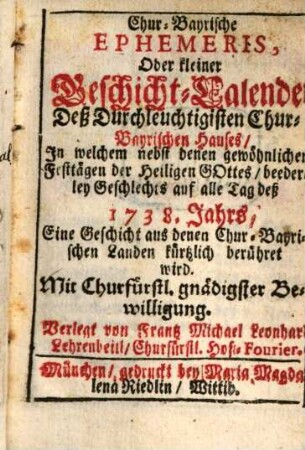 Chur-Bayrische
EPHEMERIS,
Oder kleiner
Geschicht-Calender
Deß Durchleuchtigisten Chur-
Bayrischen Hauses/
In welchem nebst denen gewöhnlichen
Festtägen der Heiligen GOttes/ beeder-
ley Geschlechts auf alle Tag deß
1738. Jahrs/
Eine Geschicht aus denen Chur-Bayri-
schen Landen kürtzlich berühret
wird.
Mit Churfürstl. gnädigster Be-
willigung.
Verlegt von Frantz Michael Leonhard
Lehrenbeitl/ Churfürstl. Hof-Fourier.
München/ gedruckt bey Maria Magda-
lena Riedlin/ Wittib.